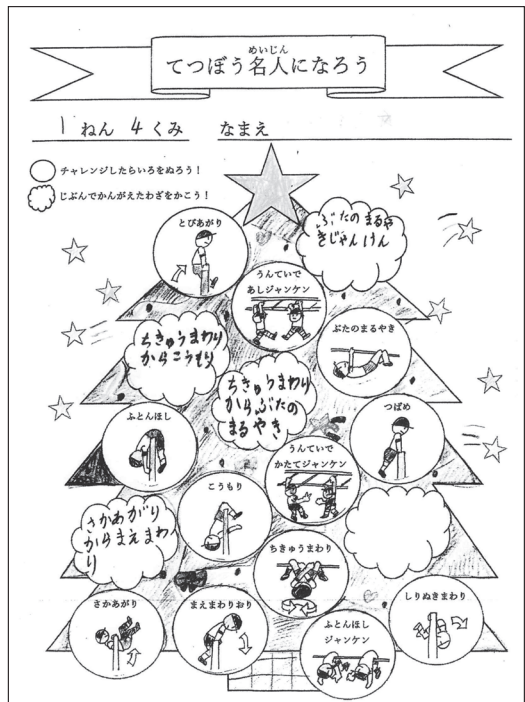 めいじん
てつぼう名人になろう
1 ねん 4 くみ なまえ
チャレンジしたらいろをぬろう！
じぶんでかんがえたわざをかこう！
とびあがり
ぶたのまるや
きじゃんけん
うんていで
あしジャンケン
ぶたのまるやき
ちきゅうまわり
からこうもり
ちきゅうまわり
からぶたの
まるやき
つばめ
ふとんほし
うんていで
かたてジャンケン
こうもり
さかあがり
からまえまわ
り
ちきゅうまわり
しりぬきまわり
さかあがり
まえまわりおり
ふとんほし
ジャンケン